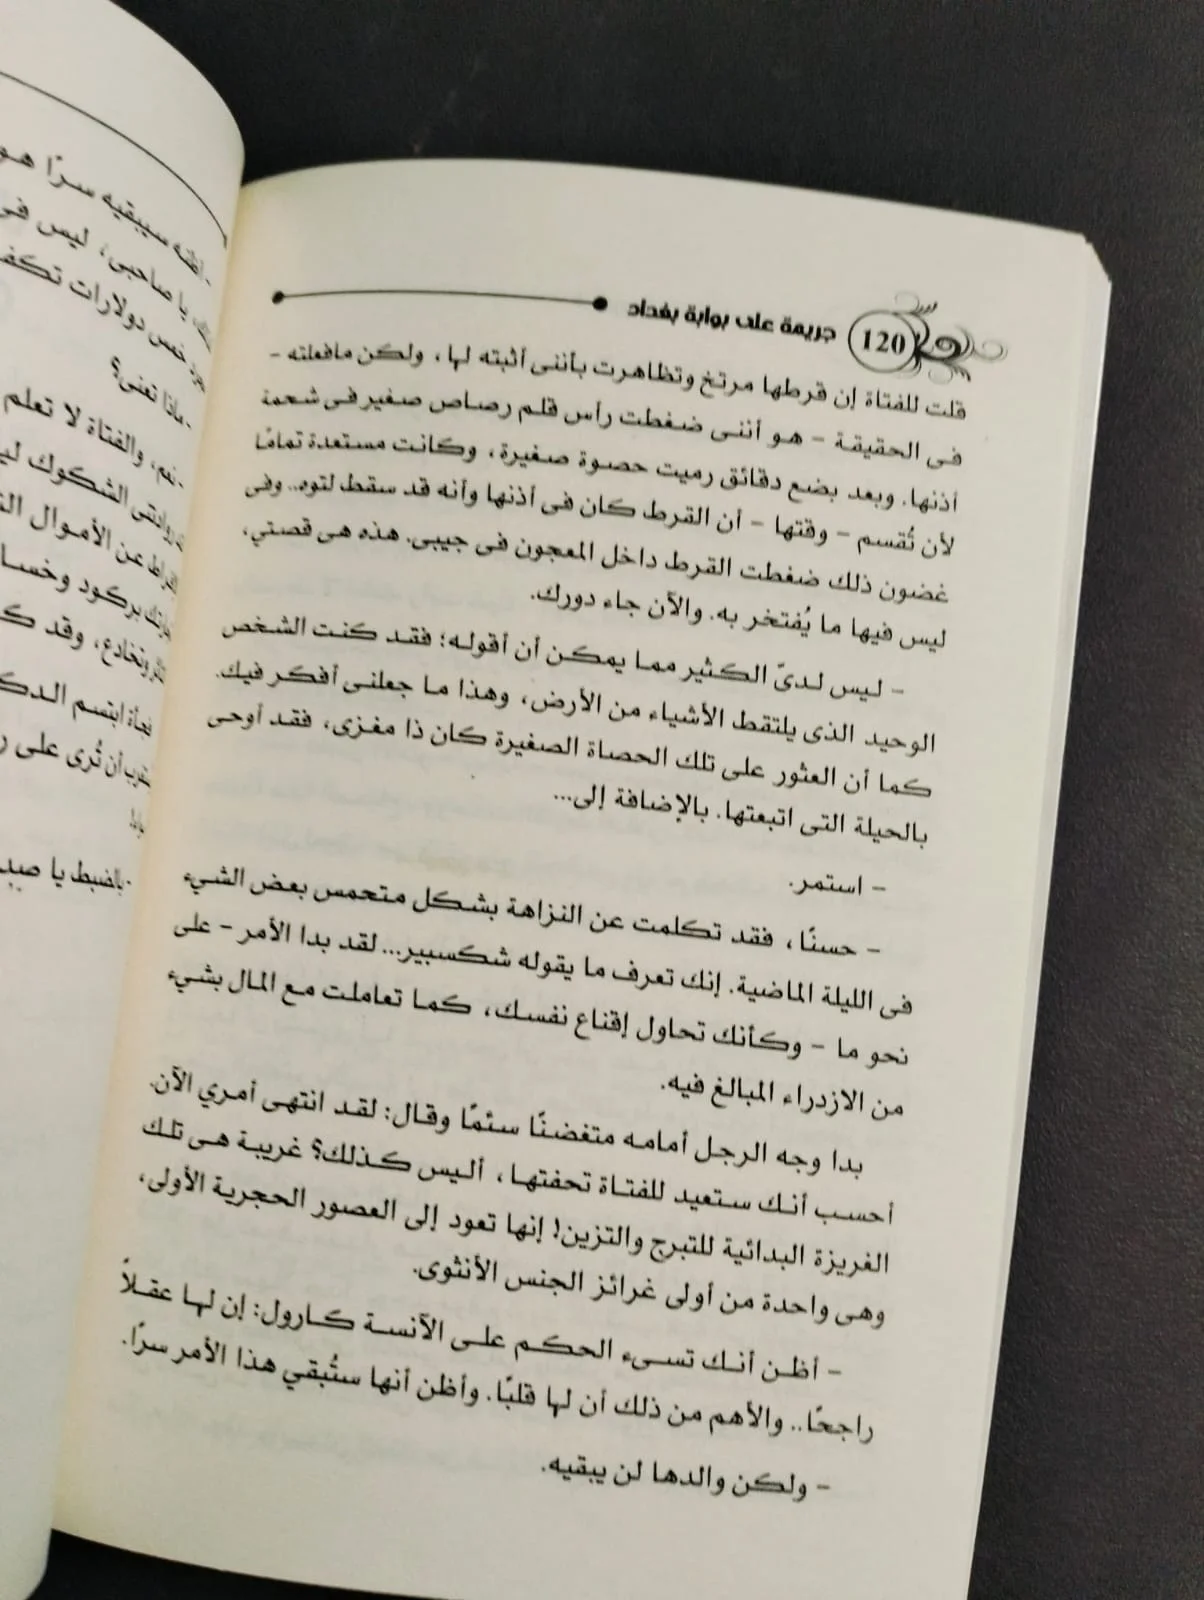 120
جريمة على بوابة بغداد
قلت للفتاة إن قرطها مرتخ وتظاهرت بأننى أثبته لها، ولكن مافعلته -
فى الحقيقة - هو أننى ضغطت رأس قلم رصاص صغير فى شحمة
أذنها. وبعد بضع دقائق رميت حصوة صغيرة، وكانت مستعدة تمامًا
لأن تُقسم - وقتها - أن القرط كان فى أذنها وأنه قد سقط لتوه.. وفى
غضون ذلك ضغطت القرط داخل المعجون فى جيبى. هذه هى قصتي،
ليس فيها ما يُفتخر به. والآن جاء دورك.
- ليس لدىّ الكثير مما يمكن أن أقوله؛ فقد كنت الشخص
الوحيد الذى يلتقط الأشياء من الأرض، وهذا ما جعلنى أفكر فيك.
كما أن العثور على تلك الحصاة الصغيرة كان ذا مغزى، فقد أوحى
بالحيلة التى اتبعتها. بالإضافة إلى...
- استمر.
- حسنًا، فقد تكلمت عن النزاهة بشكل متحمس بعض الشيء
فى الليلة الماضية. إنك تعرف ما يقوله شكسبير... لقد بدا الأمر - على
نحو ما - وكأنك تحاول إقناع نفسك، كما تعاملت مع المال بشيء
من الازدراء المبالغ فيه.
بدا وجه الرجل أمامه متغضنًا سئمًا وقال: لقد انتهى أمري الآن.
أحسب أنك ستعيد للفتاة تحفتها، أليس كذلك؟ غريبة هى تلك
الغريزة البدائية للتبرج والتزين! إنها تعود إلى العصور الحجرية الأولى،
وهى واحدة من أولى غرائز الجنس الأنثوى.
- أظن أنك تسىء الحكم على الآنسة كارول: إن لها عقلاً
راجحًا.. والأهم من ذلك أن لها قلبًا. وأظن أنها ستُبقي هذا الأمر سرًا.
- ولكن والدها لن يبقيه.
- أظنه سيبقيه سرًا هو
يا صاحبى، ليس فى
خمس دولارات تكف
- ماذا تعنى؟
- نعم، والفتاة لا تعلم
الشكوك
عن الأموال
بركود
وتخادع، وقد
فجأة ابتسم
أن تُرى على
- بالضبط يا